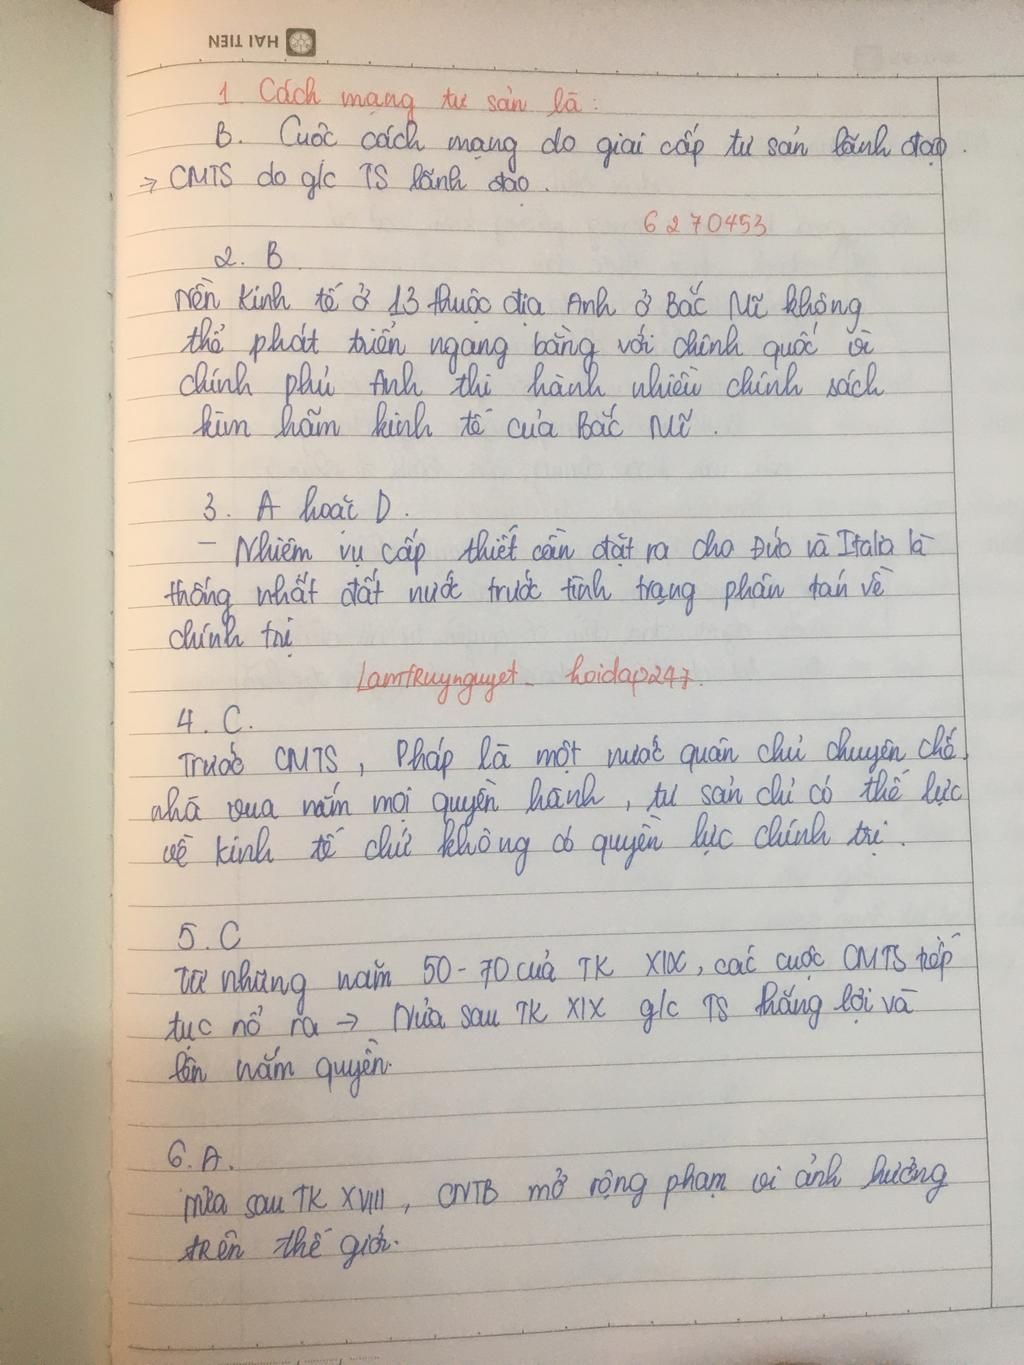 HAI TIEN
1. Cách mạng tư sản là :
B. Cuộc cách mạng do giai cấp tư sản lãnh đạo.
→ CMTS do g/c TS lãnh đạo.
6270453
2. B
Nền kinh tế ở 13 thuộc địa Anh ở Bắc Mĩ không
thể phát triển ngang bằng với chính quốc vì
chính phủ Anh thi hành nhiều chính sách
kìm hãm kinh tế của Bắc Mĩ.
3. A hoặc D.
- Nhiệm vụ cấp thiết cần đặt ra cho Đức và Italia là
thống nhất đất nước trước tình trạng phân tán về
chính trị
Lamtruynguyet_ hoidap247.
4. C.
Trước CMTS, Pháp là một nước quân chủ chuyên chế,
nhà vua nắm mọi quyền hành, tư sản chỉ có thế lực
về kinh tế chứ không có quyền lực chính trị.
5. C
Từ những năm 50-70 của TK XIX, các cuộc CMTS tiếp
tục nổ ra → Nửa sau TK XIX g/c TS thắng lợi và
lên nắm quyền.
6. A.
Nửa sau TK XVIII, CNTB mở rộng phạm vi ảnh hưởng
trên thế giới.